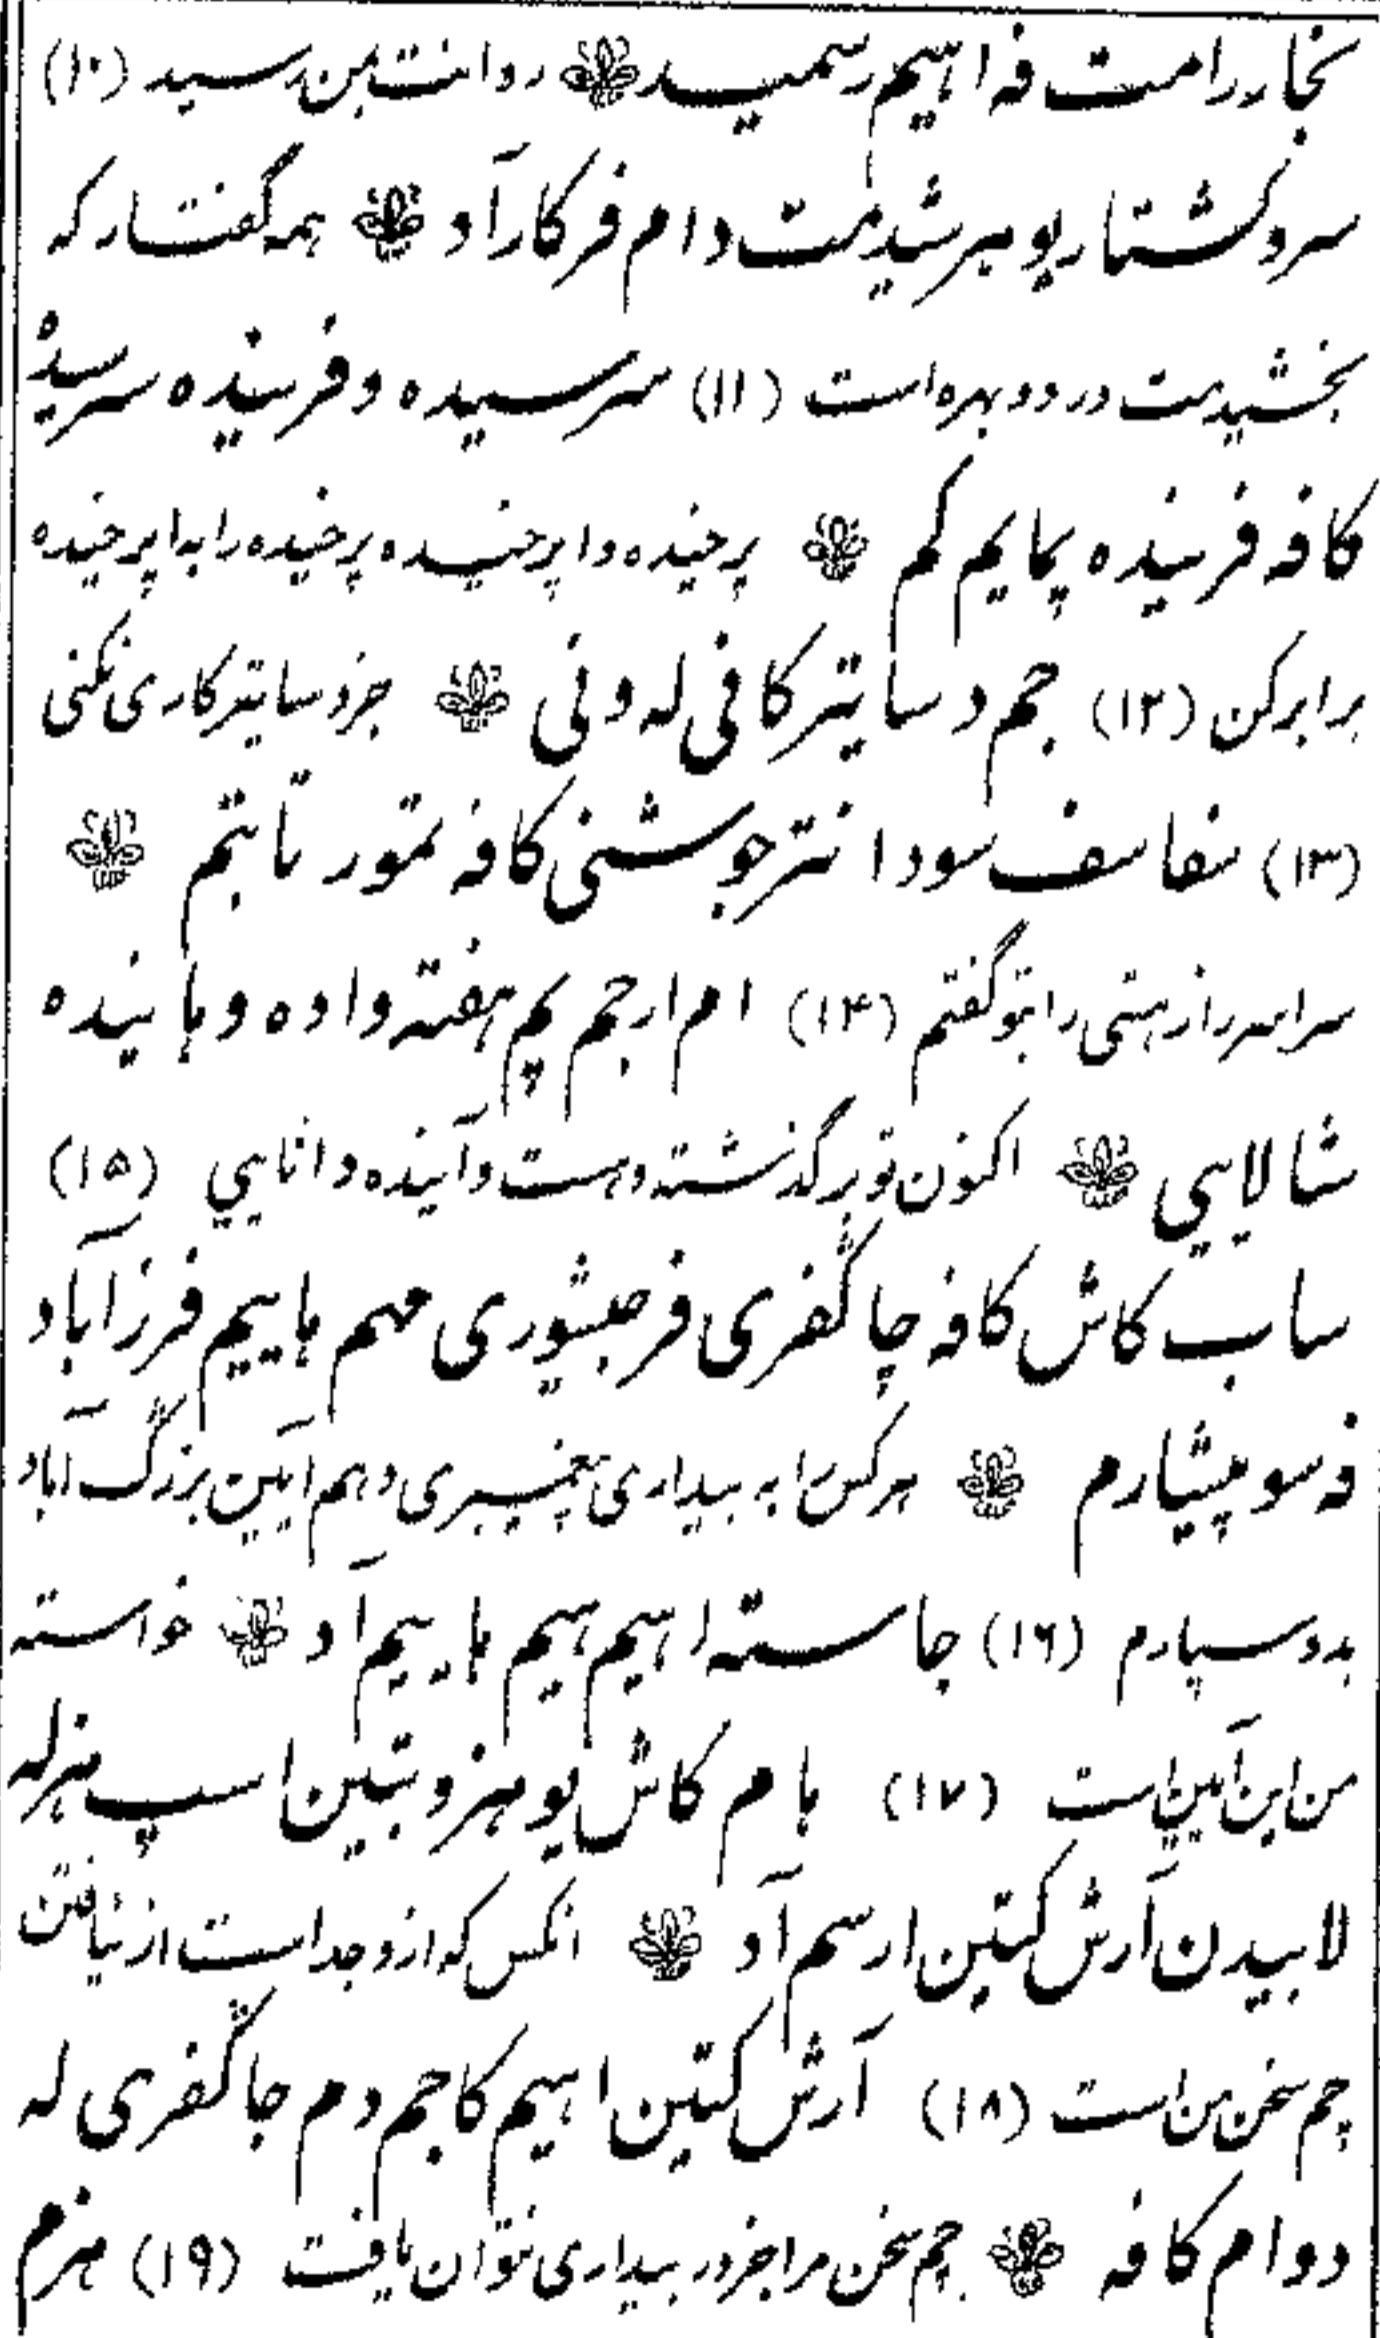 نجار رامت فه اهیم رسمید روانت بمن رسید (۱۰)
سروکشتار یو هیرشیدمت دام فرکار آد همه گفتار که
بخشیدمت در دو بهره است (۱۱) سرسیده و فرینده سرسیدهٔ
کافه فرینده پمایم کم پرخیده و اپرخیده پرخیده را به اپرخیده
برابر کن (۱۲) جم دساتیر کافی له ونی جز دساتیر کاری نکنی
(۱۳) سفاسف سودانتر جوشنی کافه تمور تابتم
سراسر راز هستی را بتو گفتم (۱۴) ام ارجم یم هفته واده و هاینده
شالایی اکنون تو بر گذشته و هست و آینده دانایی (۱۵)
ساب کاش کافه چاگفری فرجیشوری مهم هاییم فرزآباد
فه سو پیشارم هر کس را به بیداری پیغمبری دهم آیین بزرگ آباد
بدو سپارم (۱۶) جاسته اهیم هیم هاییم آد خواسته
من این آیین است (۱۷) هام کاش یو هزو بتین اسپ هزله
لابیدن آرش کتین ارسم آد انکس که ازو جداست از نیافتن
چم سخن من است (۱۸) آرش کتین اهیم کاجم دم جاگفری له
دوام کافه چم سخن مرا جز در بیداری نتوان یافت (۱۹) هزم